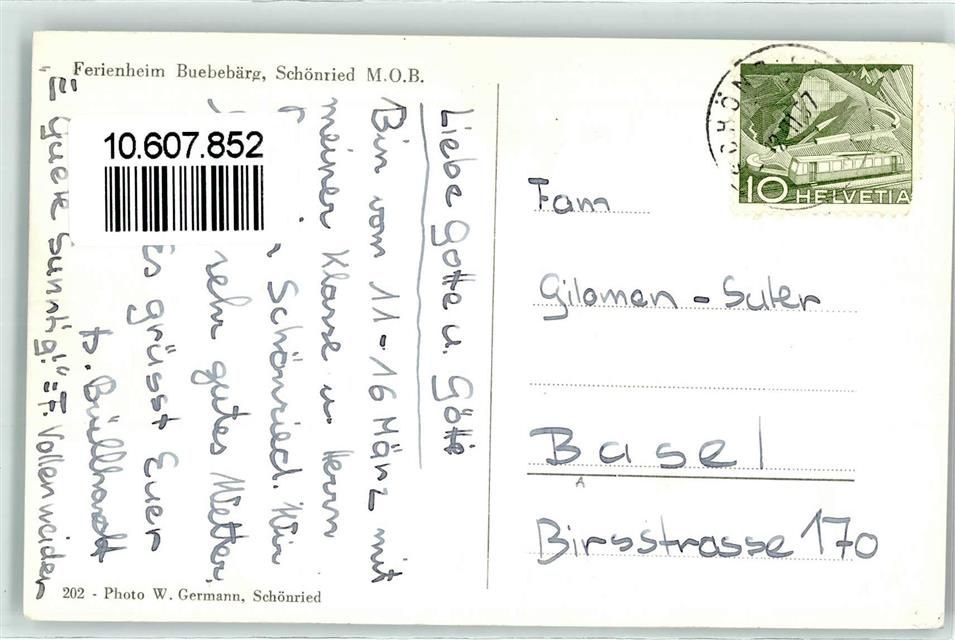 Ferienheim Buebebärg, Schönried M.O.B.
10.607.852
Liebe Gotte u. Götti
Bin vom 11-16 März mit
meiner Klasse u. Herrn
in Schönried. Wir
sehr gutes Wetter.
Es grüsst Euer
P. Büllhardt
"E guete Sunntig!" = F. Vollenweider
202 - Photo W. Germann, Schönried
10 HELVETIA
Fam
Gilomen - Suter
Basel
Birsstrasse 170